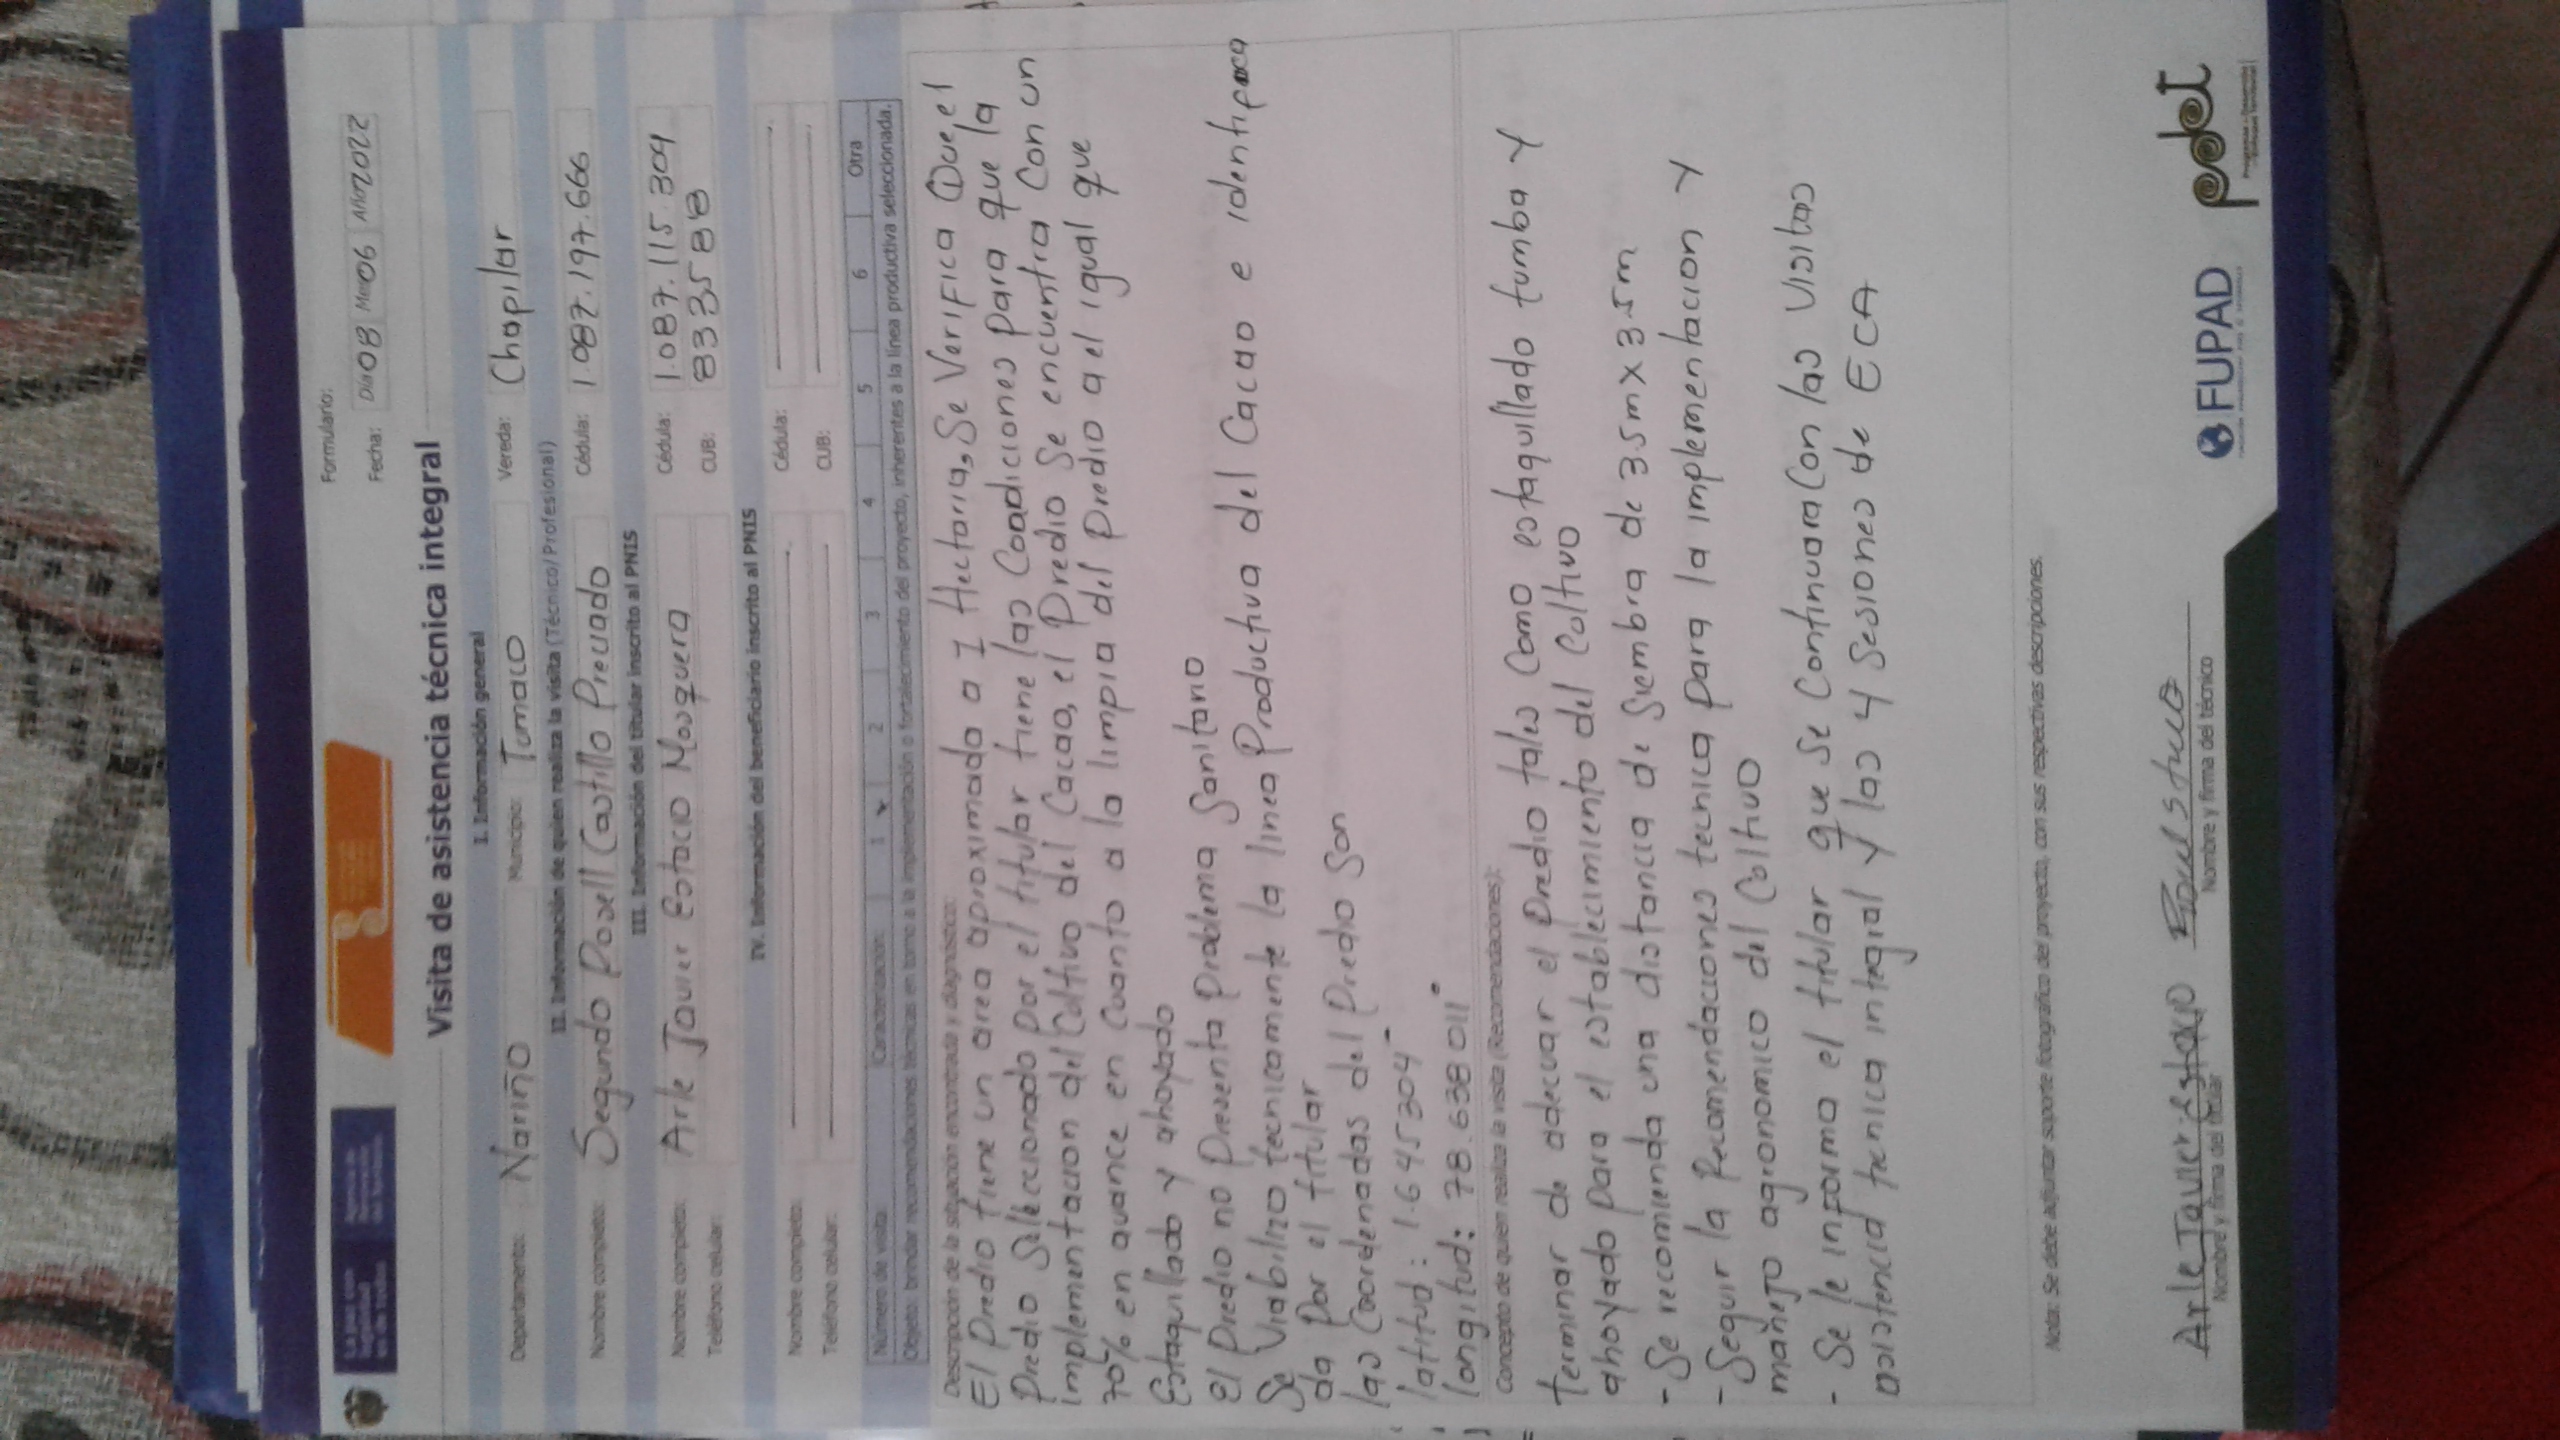 Formulario:
Fecha: Día 08 Mes 06 Año 2022
Visita de asistencia técnica integral
I. Información general
Departamento: Nariño Municipio: Tumaco Vereda: Chapilar
II. Información de quien realiza la visita (Técnico/Profesional)
Nombre completo: Segundo Posell Castillo Preciado Cédula: 1.087.197.666
III. Información del titular inscrito al PNIS
Nombre completo: Arle Javier Estacio Mosquera Cédula: 1.087.115.304
Teléfono celular: CUB: 833588
IV. Información del beneficiario inscrito al PNIS
Nombre completo: Cédula:
Teléfono celular: CUB:
Número de visita: Caracterización: 1 x 2 3 4 5 6 Otra
Objeto: brindar recomendaciones técnicas en torno a la implementación o fortalecimiento del proyecto, inherentes a la línea productiva seleccionada.
Descripción de la situación encontrada y diagnóstico:
El Predio tiene un area aproximada a 1 Hectaria, Se Verifica Que, el
Predio Selleccionado por el titular tiene las Coadiciones para que la
implementacion del Coltivo del Cacao, el Predio Se encuentra Con un
70% en avance en Cuanto a la limpia del Predio a el igual que
Estaquillado y ahoyado
El Predio no Presenta Problema Sanitario
Se Viabilizo tecnicamente la linea Productiva del Cacao e identifica
da Por el titular
las Coordenadas del Predio Son
latitud: 1.645304
longitud: 78.638011
Concepto de quien realiza la visita (Recomendaciones):
terminar de adecuar el Predio tales Como estaquillado tumba y
ahoyado para el establecimiento del Coltivo
- Se recomienda una distancia de Siembra de 3.5m x 3.5m
- Seguir la Recomendaciones tecnica para la implementacion y
mañejo agronomico del Coltivo
- Se le informa el titular que Se Continuara Con las Visitas
asistencia tecnica integral y las 4 Sesiones de ECA
Nota: Se debe adjuntar soporte fotográfico del proyecto, con sus respectivas descripciones.
Arle Javier Estacio
Nombre y firma del titular Nombre y firma del técnico
FUPAD
pdet